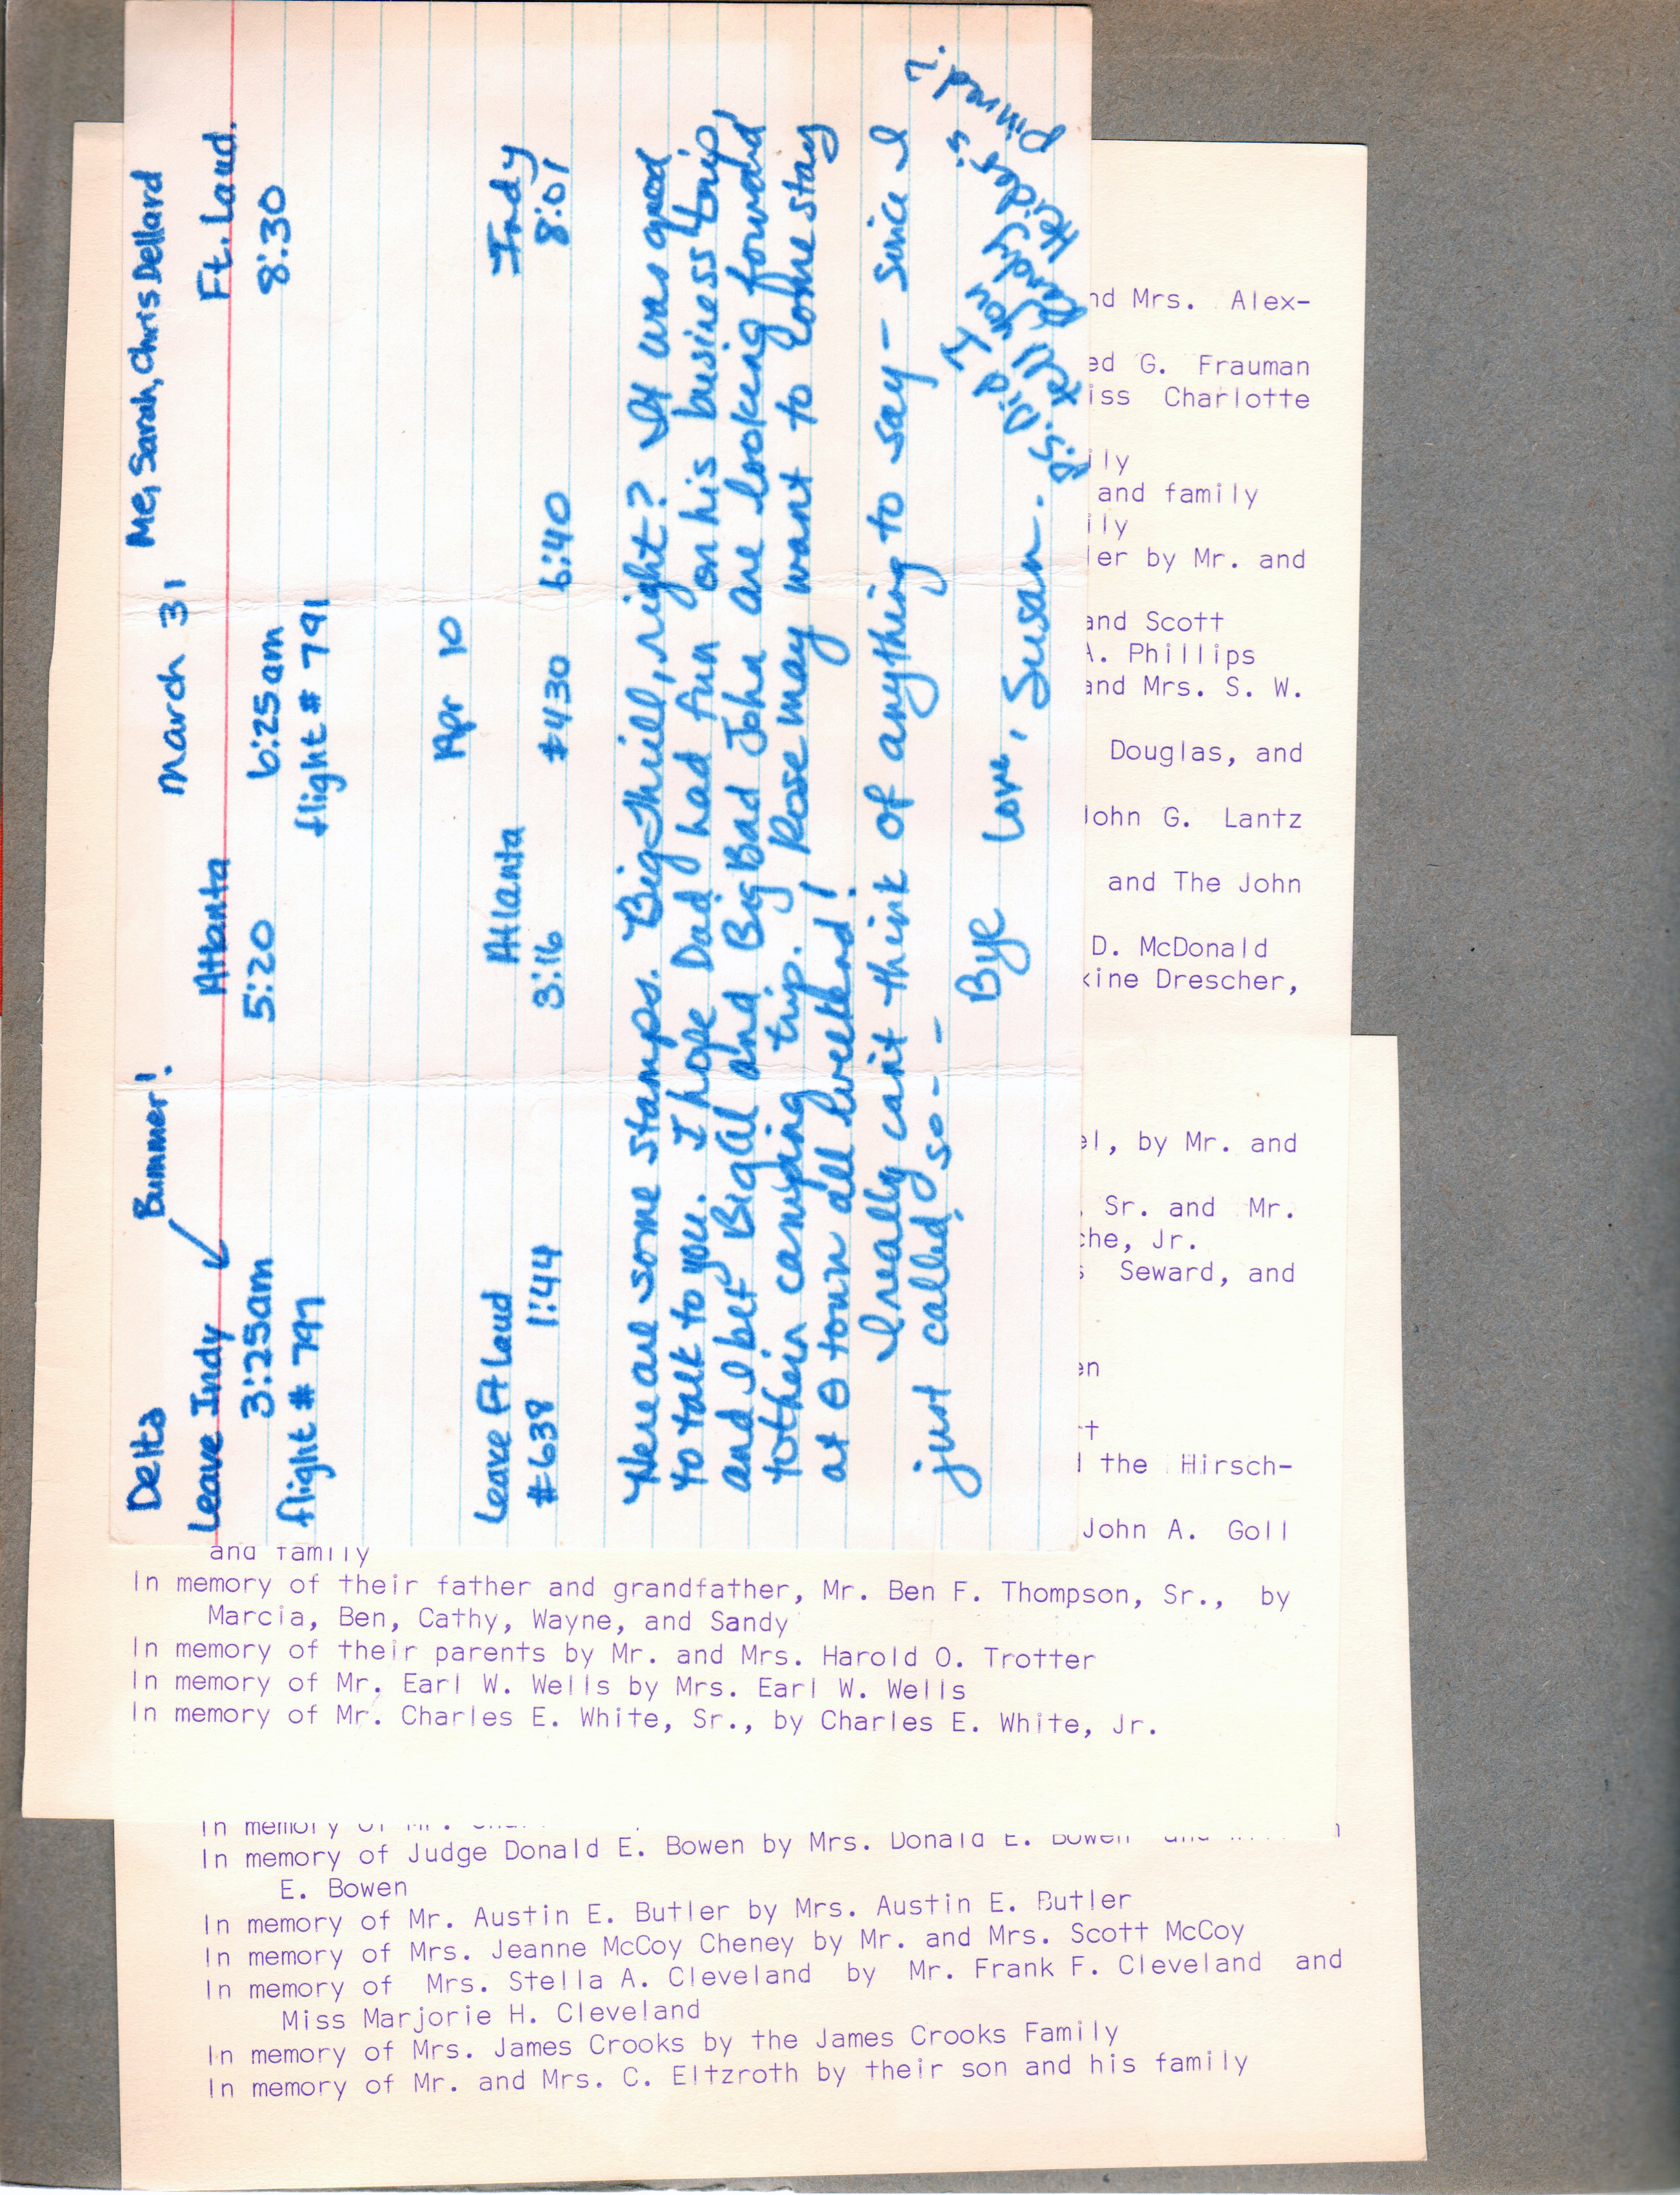 Delta Bummer! March 31 Me, Sarah, Chris Dellard
Leave Indy Atlanta Ft. Laud.
3:25am 5:20 6:25am 8:30
flight # 791 flight # 791
Apr 10
Leave Ft Laud Atlanta Indy
#638 1:44 3:16 #430 6:40 8:01
Here are some stamps. Big thrill, right? It was good
to talk to you. I hope Dad had fun on his business trip,
and I bet Big Al and Big Bad John are looking forward
to their camping trip. Rose may want to come stay
at θ town all weekend!
I really can't think of anything to say - since I
just called, so -
Bye Love, Susan.
P.S. Did you
tell Randy Heider is
pinned?
nd Mrs. Alex-
ed G. Frauman
iss Charlotte
ily
and family
ily
ler by Mr. and
and Scott
A. Phillips
and Mrs. S. W.
Douglas, and
John G. Lantz
and The John
D. McDonald
kine Drescher,
el, by Mr. and
, Sr. and Mr.
che, Jr.
s Seward, and
en
-t
d the Hirsch-
John A. Goll
and family
In memory of their father and grandfather, Mr. Ben F. Thompson, Sr., by
Marcia, Ben, Cathy, Wayne, and Sandy
In memory of their parents by Mr. and Mrs. Harold O. Trotter
In memory of Mr. Earl W. Wells by Mrs. Earl W. Wells
In memory of Mr. Charles E. White, Sr., by Charles E. White, Jr.
In memory of Mr.
In memory of Judge Donald E. Bowen by Mrs. Donald E. Bowen and
E. Bowen
In memory of Mr. Austin E. Butler by Mrs. Austin E. Butler
In memory of Mrs. Jeanne McCoy Cheney by Mr. and Mrs. Scott McCoy
In memory of Mrs. Stella A. Cleveland by Mr. Frank F. Cleveland and
Miss Marjorie H. Cleveland
In memory of Mrs. James Crooks by the James Crooks Family
In memory of Mr. and Mrs. C. Eltzroth by their son and his family